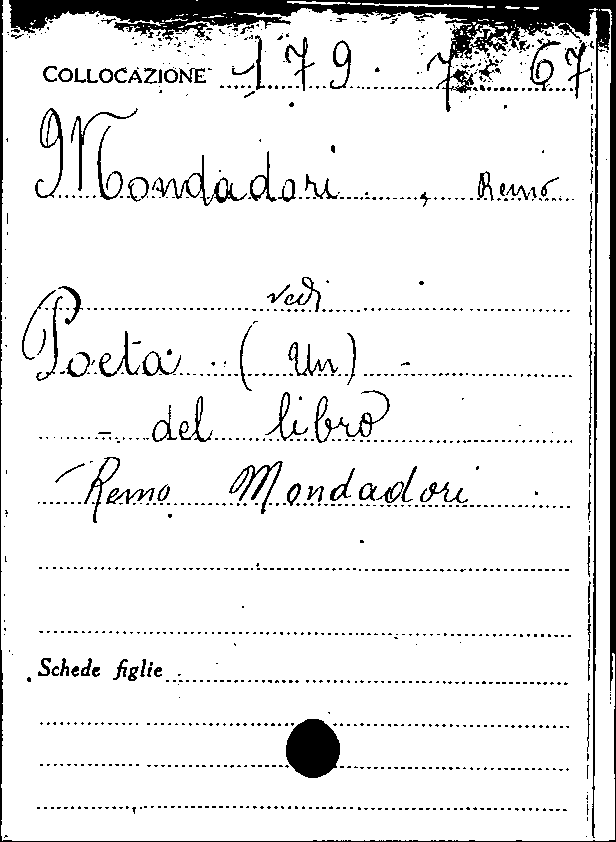 COLLOCAZIONE 179. 7. 67
Mondadori, Remo
vedi
Poeta (Un) -
- del libro
Remo Mondadori.
Schede figlie